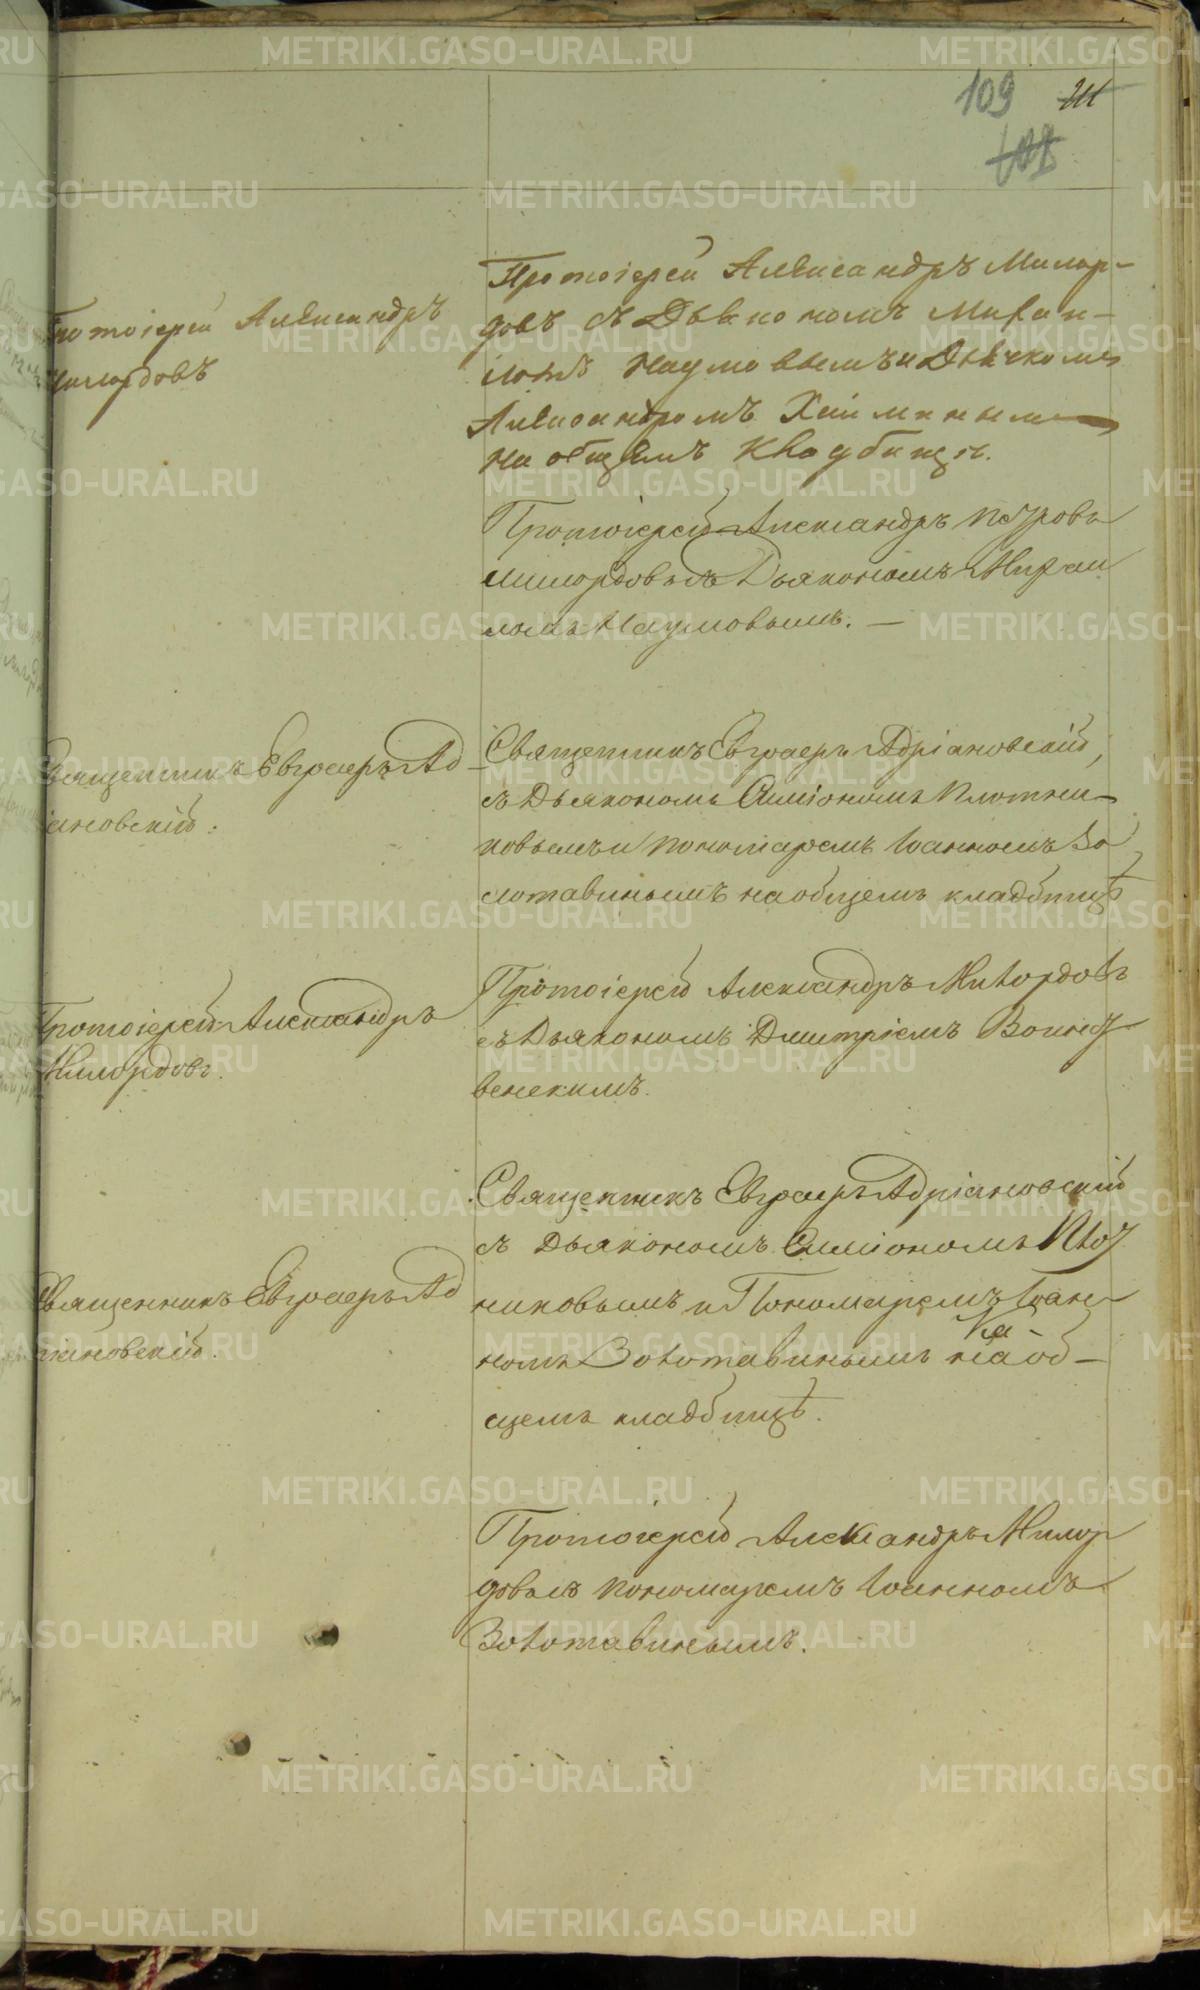 109 111
108
Протоіерей Александръ
Милордовъ
Протоіерей Александръ Милор-
довъ съ Дьякономъ Михаи-
ломъ Наумовымъ и Дьячкомъ
Александромъ
на общемъ кладбищѣ.
Протоіерей Александръ Петровъ
Милордовъ съ Дьякономъ Михаи
ломъ Наумовымъ. —
Священникъ Евграфъ Ад
ріановскій.
Священникъ Евграфъ Адріановскій,
съ Дьякономъ Симіономъ Плотни-
ковымъ и Пономаремъ Іоанномъ Зо
лотавинымъ на общемъ кладбищѣ
Протоіерей Александръ
Милордовъ.
Протоіерей Александръ Милордовъ
съ Дьякономъ Дмитріемъ
венскимъ.
Священникъ Евграфъ Ад
ріановскій.
Священникъ Евграфъ Адріановскій
съ Дьякономъ Симіономъ Плот
никовымъ и Пономаремъ Іоан-
номъ Золотавинымъ на об-
щемъ кладбищѣ.
Протоіерей Александръ Милор
довъ съ пономаремъ Іоанномъ
Золотавинымъ.
METRIKI.GASO-URAL.RU